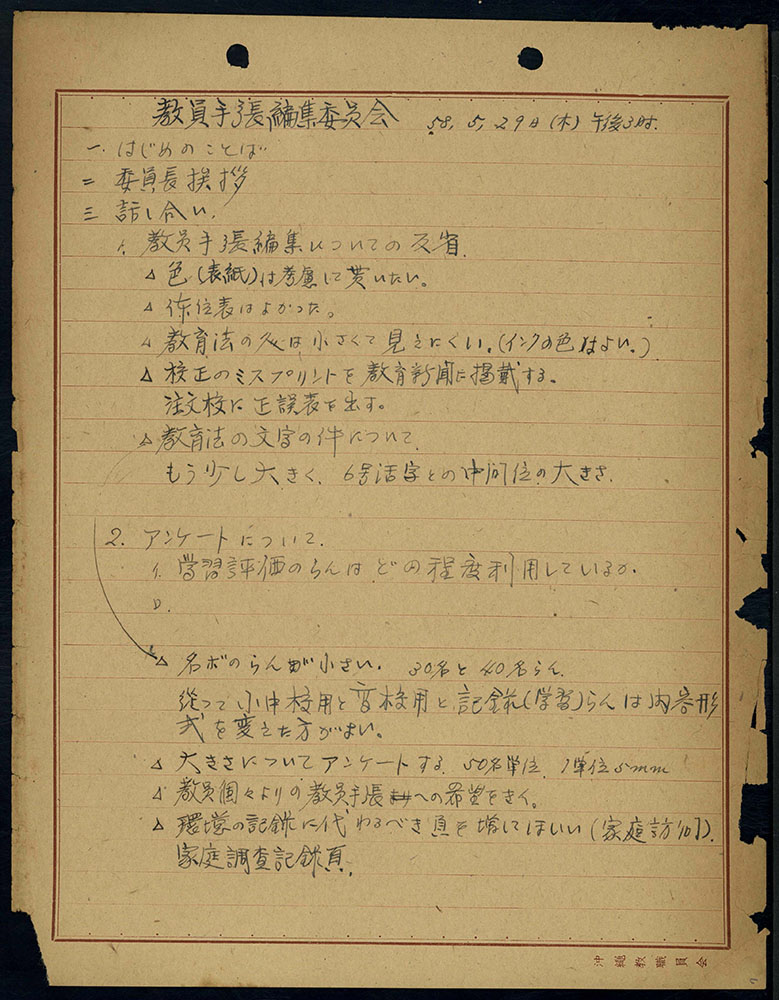 教員手張編集委員会 58, 5, 29日(木)午後3時.
一. はじめのことば
二 委員長挨拶
三 話し合い.
1. 教員手張編集についての反省.
△ 色(表紙)は考慮して貰いたい。
△ 俸位表はよかった。
△ 教育法の は小さくて見えにくい.(インクの色はよい.)
△ 校正のミスプリントを教育新聞に掲載する。
注文校に正誤表を出す。
△ 教育法の文字の件について.
もう少し大きく. 6号活字との中間位の大きさ.
2. アンケートについて.
イ. 学習評価のらんはどの程度利用しているか.
ロ.
△ 名ボのらんが小さい. 30名と40名らん.
従って小中校用と高校用と記録(学習)らんは内容形
式を変えた方がよい。
△ 大きさについてアンケートする. 50名単位. 1単位5mm
△ 教員個々よりの教員手張への希望をきく。
△ 環境の記録に代わるべき頁を増してほしい(家庭訪問).
家庭調査記録頁.
沖縄教職員会